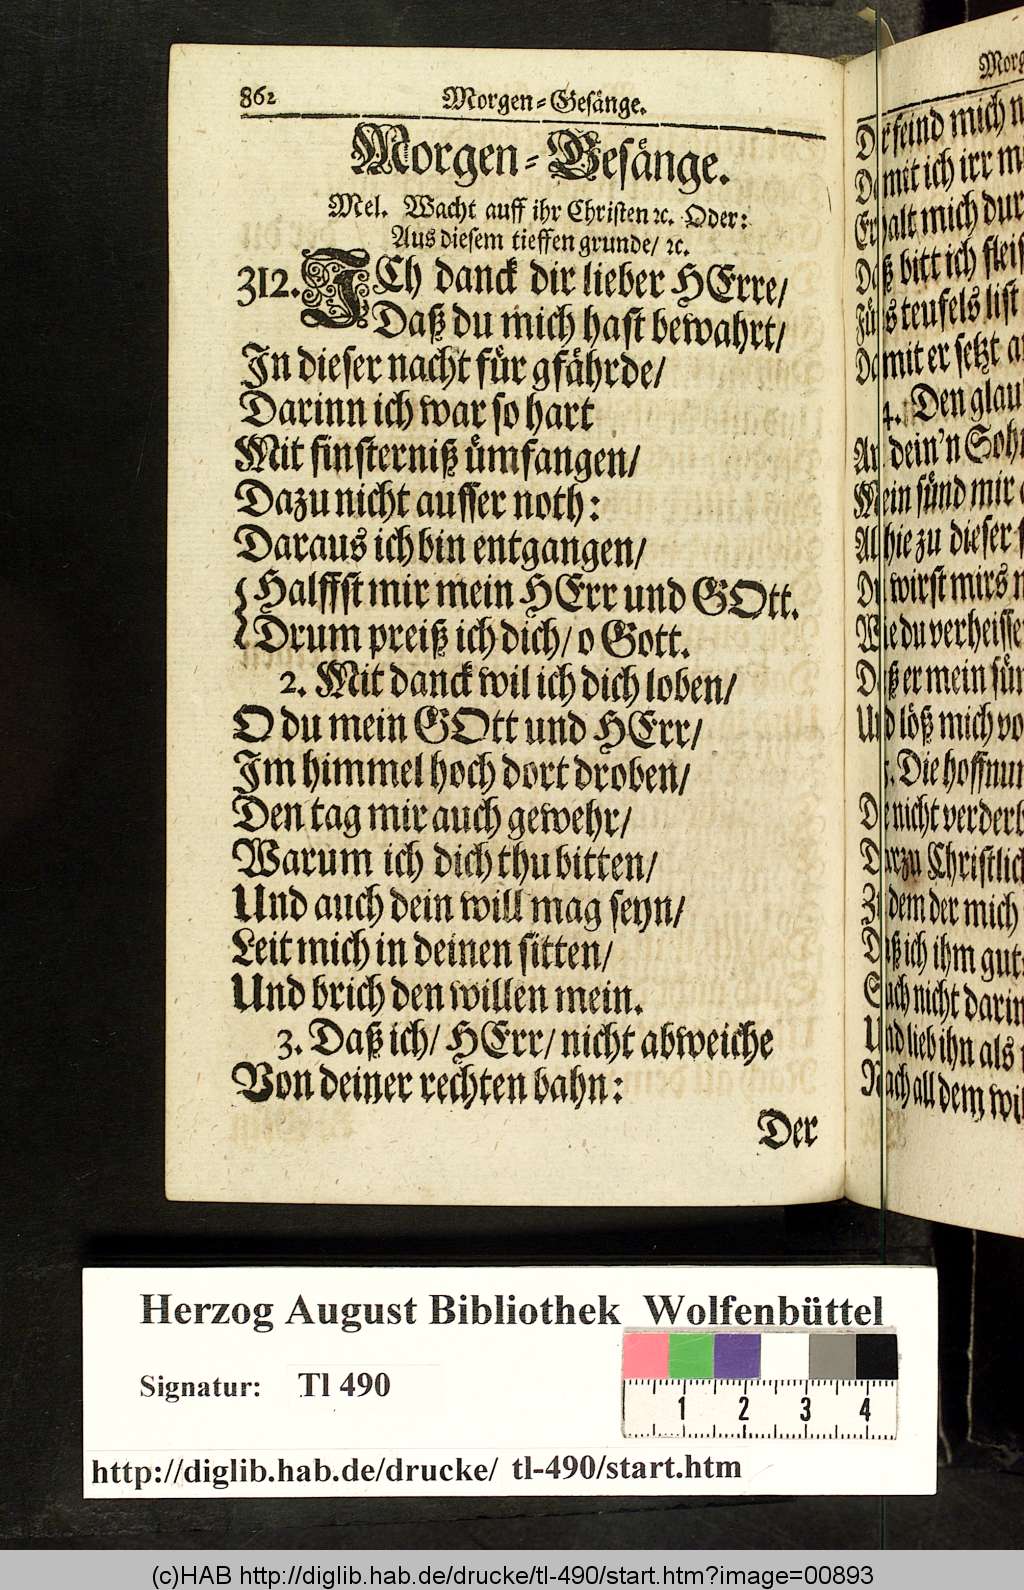 862 Morgen-Gesänge.
Morgen-Gesänge.
Mel. Wacht auff ihr Christen ꝛc. Oder:
Aus diesem tieffen grunde/ ꝛc.
312. ICh danck dir lieber HErre/
Daß du mich hast bewahrt/
In dieser nacht für gfährde/
Darinn ich war so hart
Mit finsterniß ümfangen/
Dazu nicht ausser noth:
Daraus ich bin entgangen/
Halffst mir mein HErr und GOtt.
Drum preiß ich dich/ o Gott.
2. Mit danck wil ich dich loben/
O du mein GOtt und HErr/
Im himmel hoch dort droben/
Den tag mir auch gewehr/
Warum ich dich thu bitten/
Und auch dein will mag seyn/
Leit mich in deinen sitten/
Und brich den willen mein.
3. Daß ich/ HErr/ nicht abweiche
Von deiner rechten bahn:
Der
Morg
feind mich
mit ich irr
halt mich dur
bitt ich
teufels list
mit er setzt
4. Den glau
dein'n Sohn
sünd mir
hie zu dieser
wirst mirs
du verheisse
er mein sün
löß mich vo
Die hoffnun
nicht verderb
Christlich
dem der mich
ich ihm gut
nicht darin
lieb ihn als
all dem wil
Herzog August Bibliothek Wolfenbüttel
Signatur: Tl 490
1 2 3 4
http://diglib.hab.de/drucke/ tl-490/start.htm
(c)HAB http://diglib.hab.de/drucke/tl-490/start.htm?image=00893